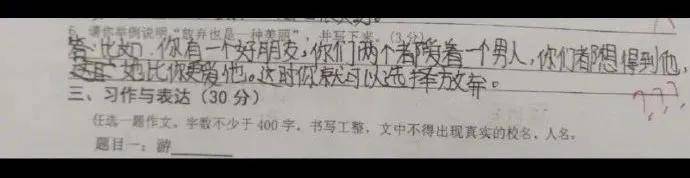 6. 请你举例说明“放弃也是一种美丽”，并写下来。(3分)
答：比如：你有一个好朋友，你们两个都随爱着一个男人，你们都想得到他，
她比你更爱他，这时你就可以选择放弃。
三、习作与表达（30 分）
任选一题作文。字数不少于 400 字，书写工整，文中不得出现真实的校名、人名。
题目一：游